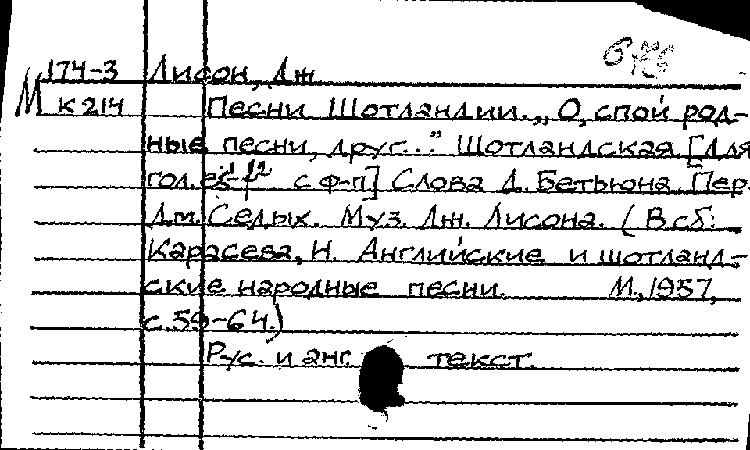 174-3 Лисон, Дж
М К 214 Песни Шотландии. „О, спой род-
ные песни, друг..." Шотландская [Для
гол. с ф-п] Слова Д. Бетьюна. Пер.
Дм. Седых. Муз. Дж. Лисона. (В сб:
Карасева, Н. Английские и шотланд-
ские народные песни. М., 1957,
с. 59-64.)
Рус. и анг. текст.